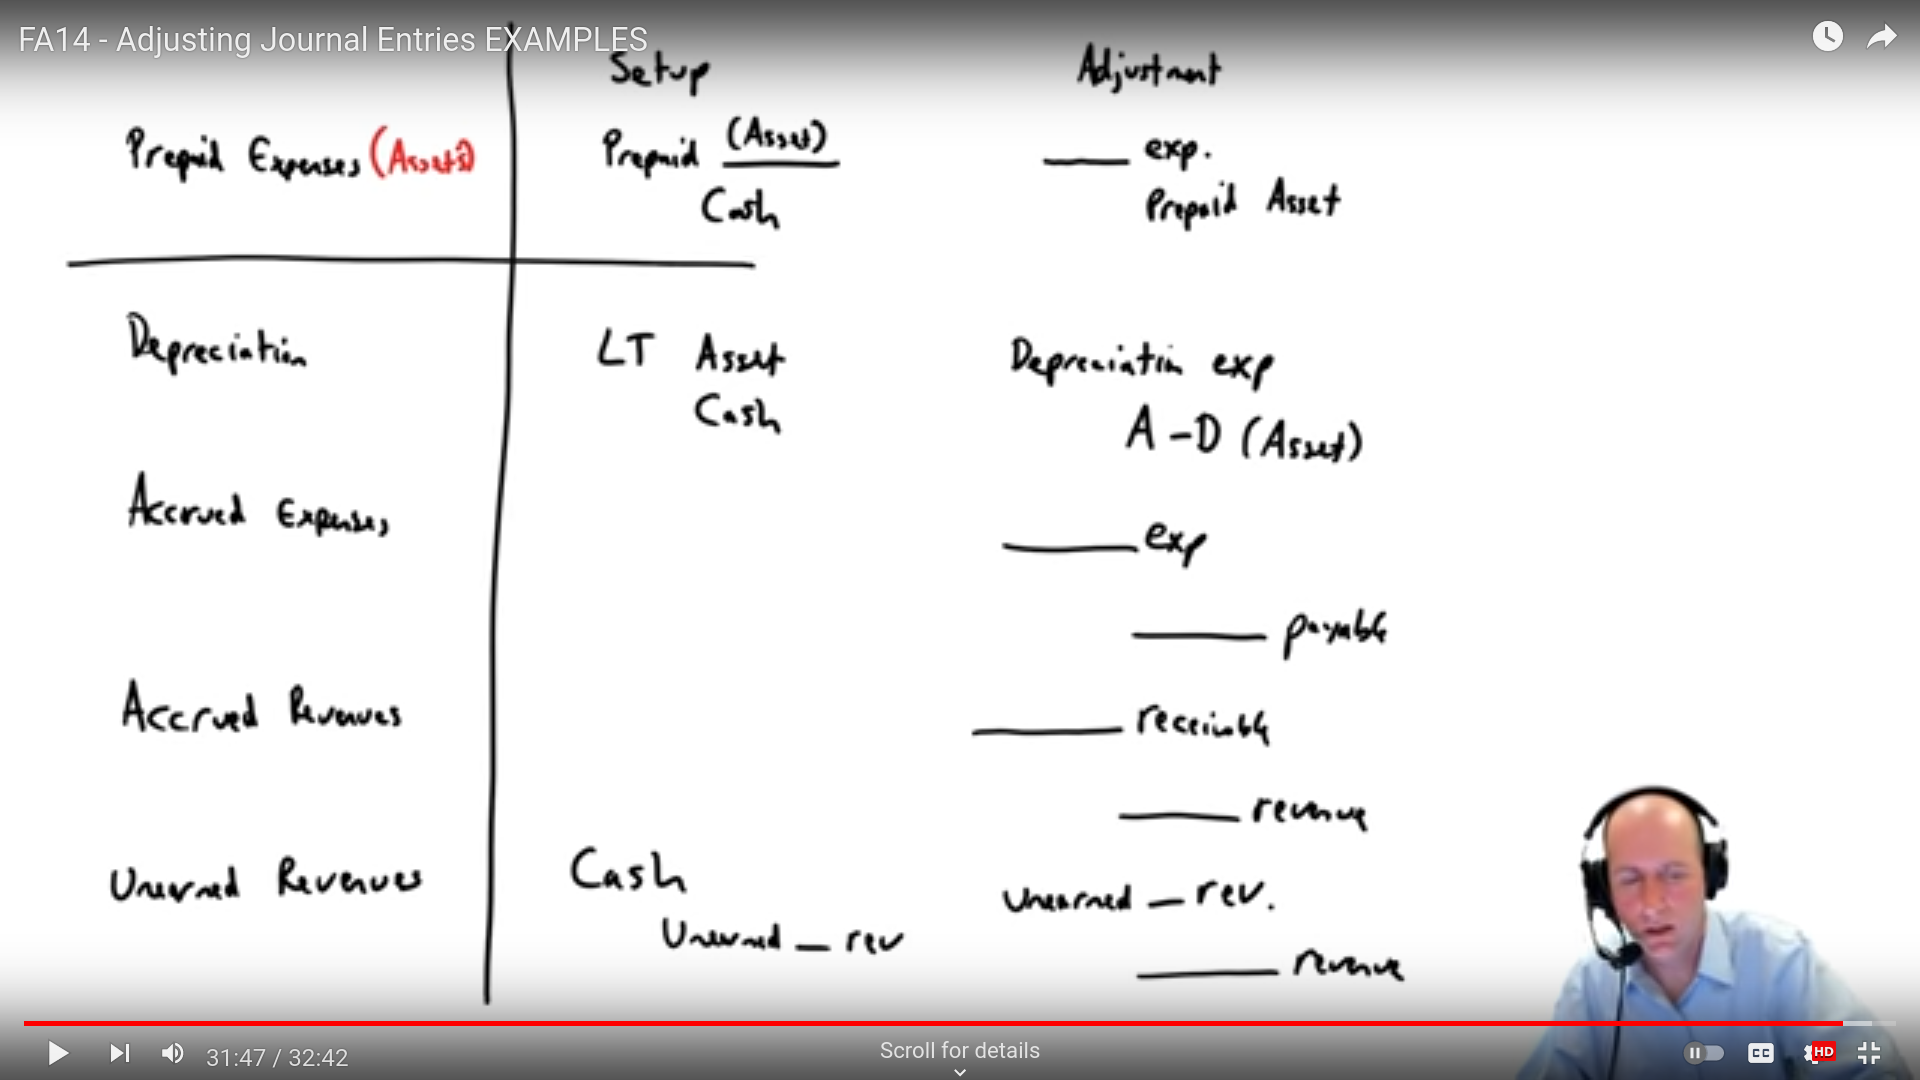 FA14 - Adjusting Journal Entries EXAMPLES
Setup
Adjustment
Prepaid Expenses (Assets)
Prepaid (Asset)
Cash
____ exp.
Prepaid Asset
Depreciation
LT Asset
Cash
Depreciation exp
A-D (Asset)
Accrued Expenses
____ exp
____ payable
Accrued Revenues
____ receivable
____ revenue
Unearned Revenues
Cash
Unearned _ rev
Unearned _ rev.
____ revenue
31:47 / 32:42
Scroll for details
CC
HD